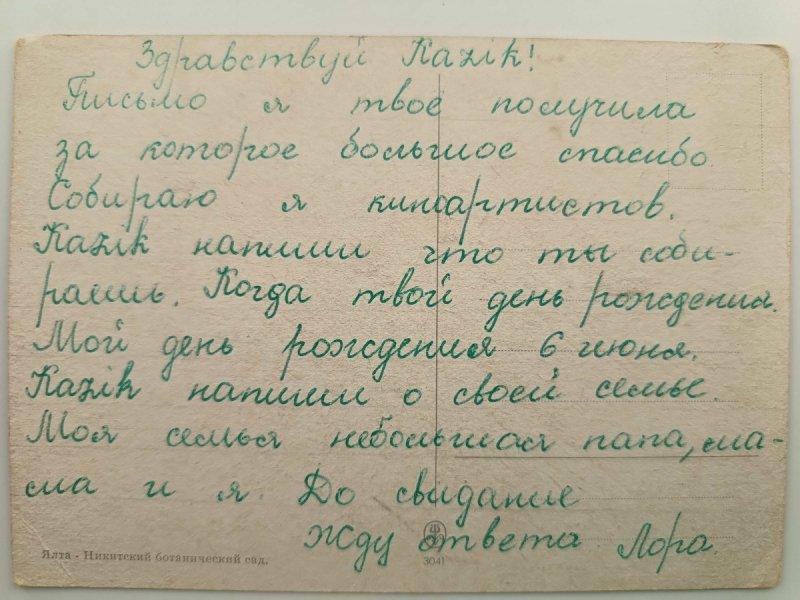 Здравствуй Kazik!
Письмо я твое получила
за которое большое спасибо
Собираю я киноартистов.
Kazik напиши что ты соби-
раешь. Когда твой день рождения.
Мой день рождения 6 июня.
Kazik напиши о своей семье.
Моя семья небольшая папа, ма-
ма и я. До свидание
Жду ответа. Лора.
Ялта - Никитский ботанический сад.
3041